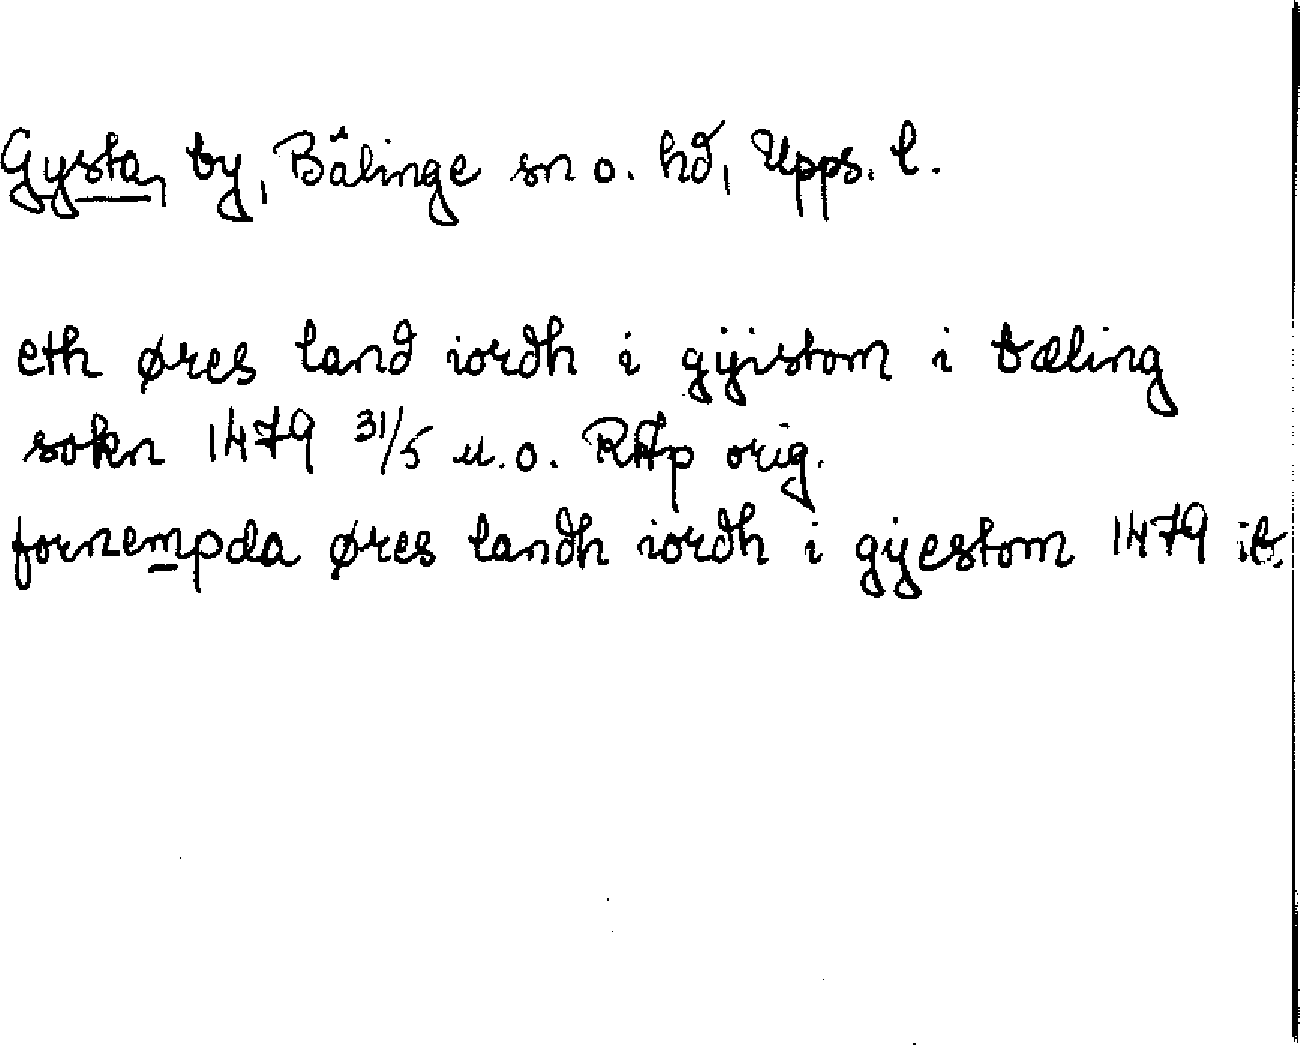 Gysta, by, Bälinge sn o. hd, Upps. l.
eth øres land iordh i gÿistom i bæling
sokn 1479 31/5 u.o. RAp orig.
fornempda øres landh iordh i gÿestom 1479 ib.